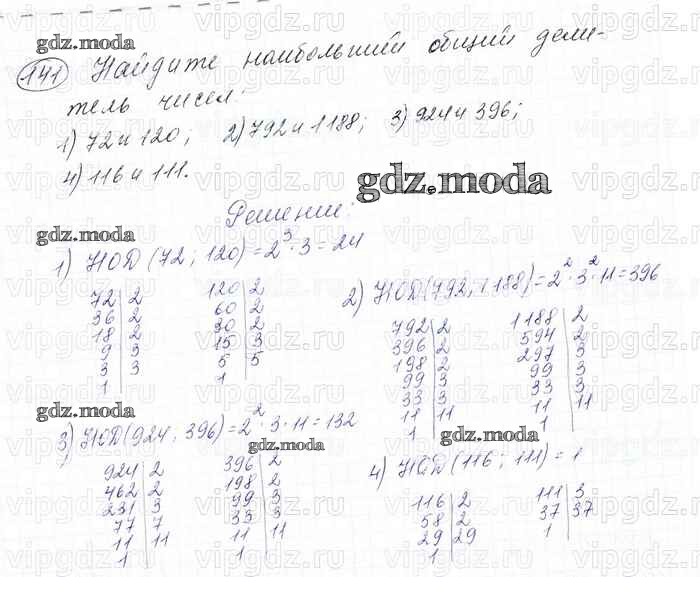 gdz.moda
141 Найдите наибольший общий дели-
тель чисел:
1) 72 и 120; 2) 792 и 1188; 3) 924 и 396;
4) 116 и 111.
gdz.moda
Решение:
gdz.moda
1) НОД (72; 120) = 2³ · 3 = 24
72 | 2
36 | 2
18 | 2
9 | 3
3 | 3
1
120 | 2
60 | 2
30 | 2
15 | 3
5 | 5
1
2) НОД (792; 1188) = 2² · 3² · 11 = 396
792 | 2
396 | 2
198 | 2
99 | 3
33 | 3
11 | 11
1
1188 | 2
594 | 2
297 | 3
99 | 3
33 | 3
11 | 11
1
gdz.moda
3) НОД (924; 396) = 2² · 3 · 11 = 132
gdz.moda
gdz.moda
924 | 2
462 | 2
231 | 3
77 | 7
11 | 11
1
396 | 2
198 | 2
99 | 3
33 | 3
11 | 11
1
4) НОД (116; 111) = 1
116 | 2
58 | 2
29 | 29
1
111 | 3
37 | 37
1
vipgdz.ru